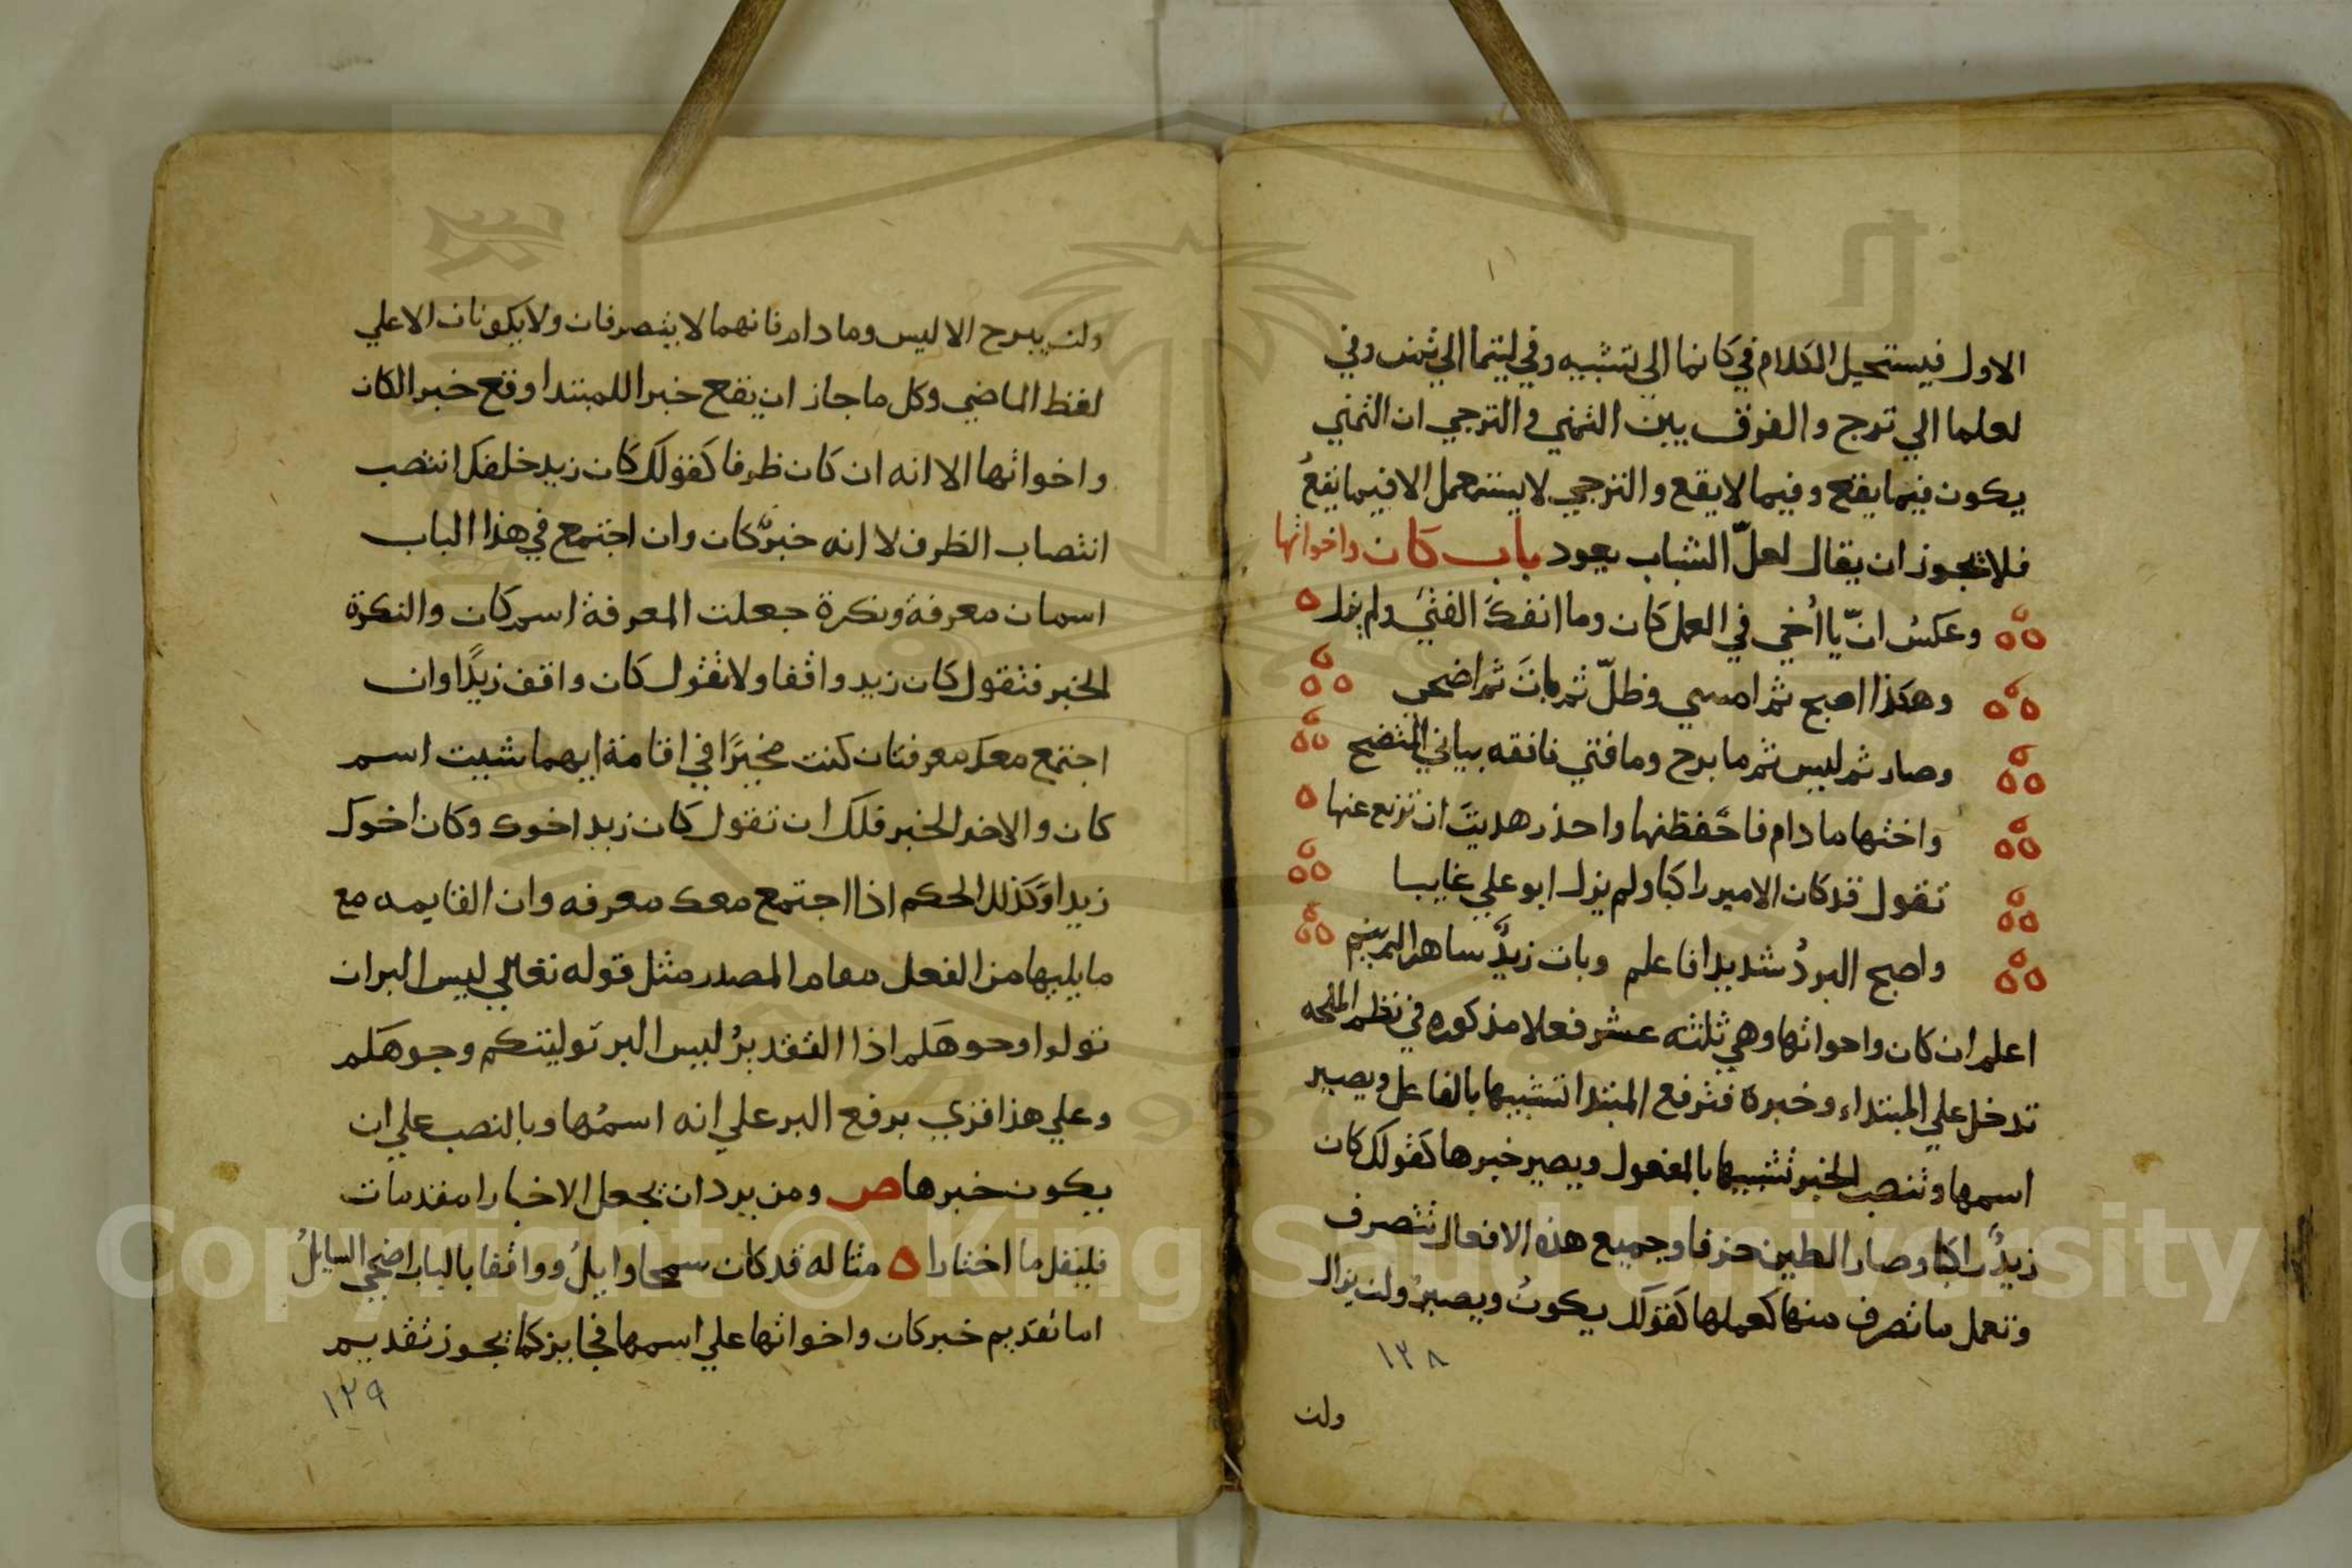 الاول فيستحيل الكلام في كانما الي تشبيه وفي ليتما الي تمن وفي
لعلما الي ترج والفرق بين التمني والترجي ان التمني
يكون فيما يقع وفيما لا يقع والترجي لا يستعمل الا فيما يقعُ
فلا يجوز ان يقال لعلّ الشباب يعود باب كان واخواتها
وعكسُ انّ يا اُخي في العمل كان وما انفكَّ الفتيَ ولم يزل
وهكذا اصبح ثم امسي وظلّ ثم باتَ ثم اضحي
وصار ثم ليس ثم ما برح وما فتي فافقه بياني المتضح
واختها ما دام فاحفظنها واحذر هديتَ ان تزيع عنها
تقول قد كان الامير راكبا ولم يزل ابو علي غايبا
واصبح البردُ شديدا فاعلم وبات زيدٌ ساهرا لم ينم
اعلم ان كان واخواتها وهي ثلثه عشر فعلا مذكوره في نظم الملحه
تدخل علي المبتداء وخبرة فترفع المبتدا تشبيها بالفاعل ويصير
اسمها وتنصب الخبر تشبيها بالمفعول ويصير خبرها كقولك كان
زيدٌ راكبا وصار الطين خزفا وجميع هذه الافعال تتصرف
وتعمل ما تصرف منها كعملها كقولك يكونُ ويصيرُ ولن يزال
١٣٨
ولن
ولن يبرح الا ليس وما دام فانهما لا يتصرفان ولا يكونان الا علي
لفظ الماضي وكل ما جاز ان يقع خبرا للمبتدا وقع خبر الكان
واخواتها الا انه ان كان ظرفا كقولك كان زيد خلفك انتصب
انتصاب الظرف لا انه خبرٌ كان وان اجتمع في هذا الباب
اسمان معرفة ونكرة جعلت المعرفة اسم كان والنكرة
الخبر فتقول كان زيد واقفا ولا تقول كان واقف زيدًا وان
اجتمع معك معرفتان كنت مخيرًا في اقامة ايهما شيت اسم
كان والاخر الخبر فلك ان تقول كان زيد اخوك وكان اخوك
زيدا وكذلك الحكم اذا اجتمع معك معرفه وان القايمه مع
ما يليها من الفعل مقام المصدر مثل قوله تعالي ليس البر ان
تولوا وجوهكم اذا التقديرُ ليس البر توليتكم وجوهكم
وعلي هذا قري برفع البر علي انه اسمُها وبالنصب علي ان
يكون خبرها ص ومن يرد ان يجعل الاخبارا مقدمات
فليقل ما اختارا مثاله قد كان سمحا وايلُ وواقفا بالباب اضحي السايلُ
اما تقديم خبر كان واخواتها علي اسمها فجايز كما يجوز تقديم
١٣٩
Copyright © King Saud University